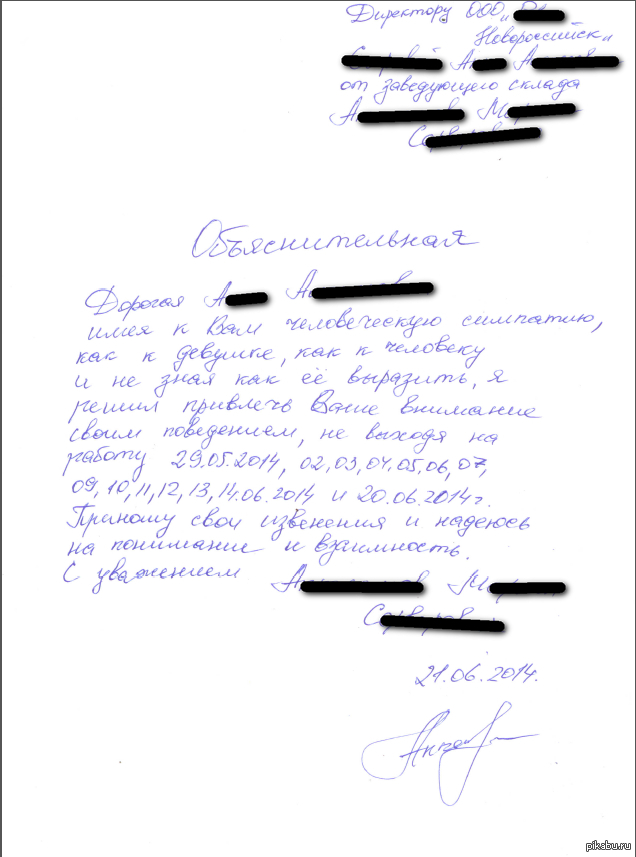 Директору ООО „
Новороссийск"
от заведующего склада
Объяснительная
Дорогая
имея к Вам человеческую симпатию,
как к девушке, как к человеку
и не зная как её выразить, я
решил привлечь Ваше внимание
своим поведением, не выходя на
работу 29.05.2014, 02, 03, 04, 05, 06, 07,
09, 10, 11, 12, 13, 14.06.2014 и 20.06.2014г.
Приношу свои извенения и надеюсь
на понимание и взаимность.
С уважением
21.06.2014.
pikabu.ru